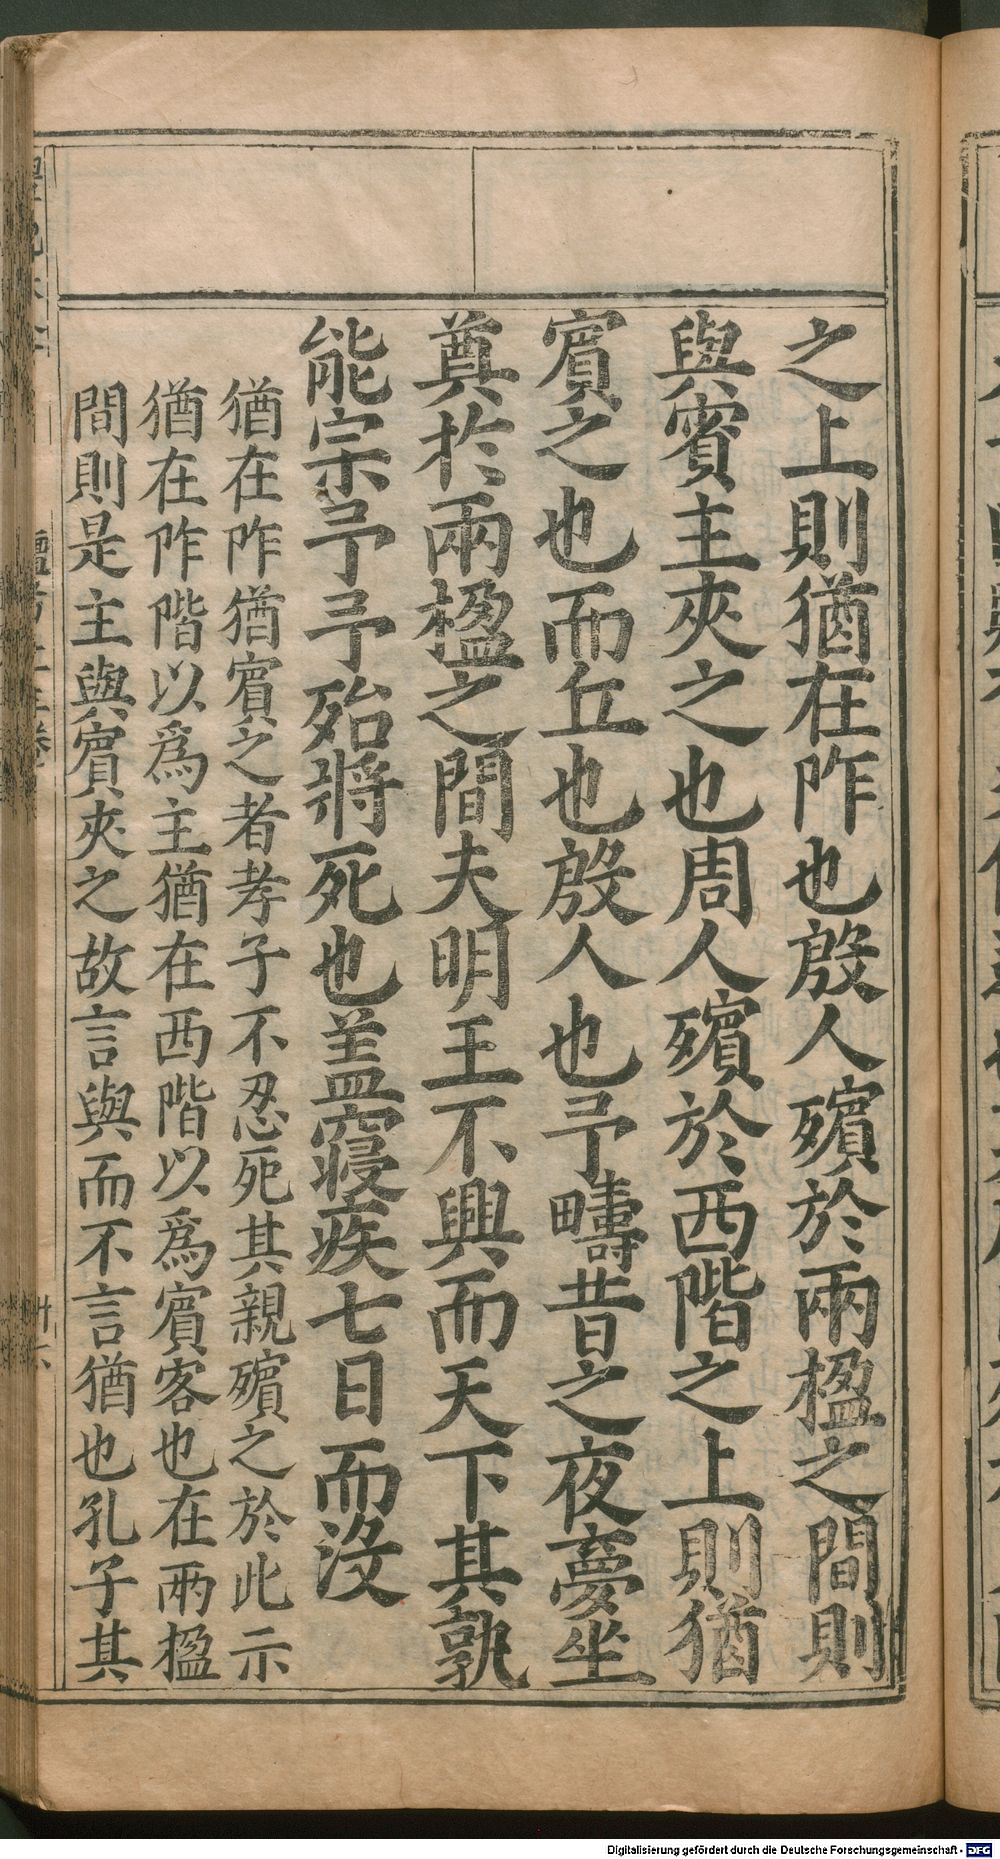 之上則猶在阼也殷人殯於兩楹之間則
與賓主夾之也周人殯於西階之上則猶
賓之也而丘也殷人也予疇昔之夜夢坐
奠於兩楹之間夫明王不興而天下其孰
能宗予予殆將死也盖寢疾七日而沒
猶在阼猶賓之者孝子不忍死其親殯之於此示
猶在阼階以為主猶在西階以為賓客也在兩楹
間則是主與賓夾之故言與而不言猶也孔子其
Digitalisierung gefördert durch die Deutsche Forschungsgemeinschaft - DFG